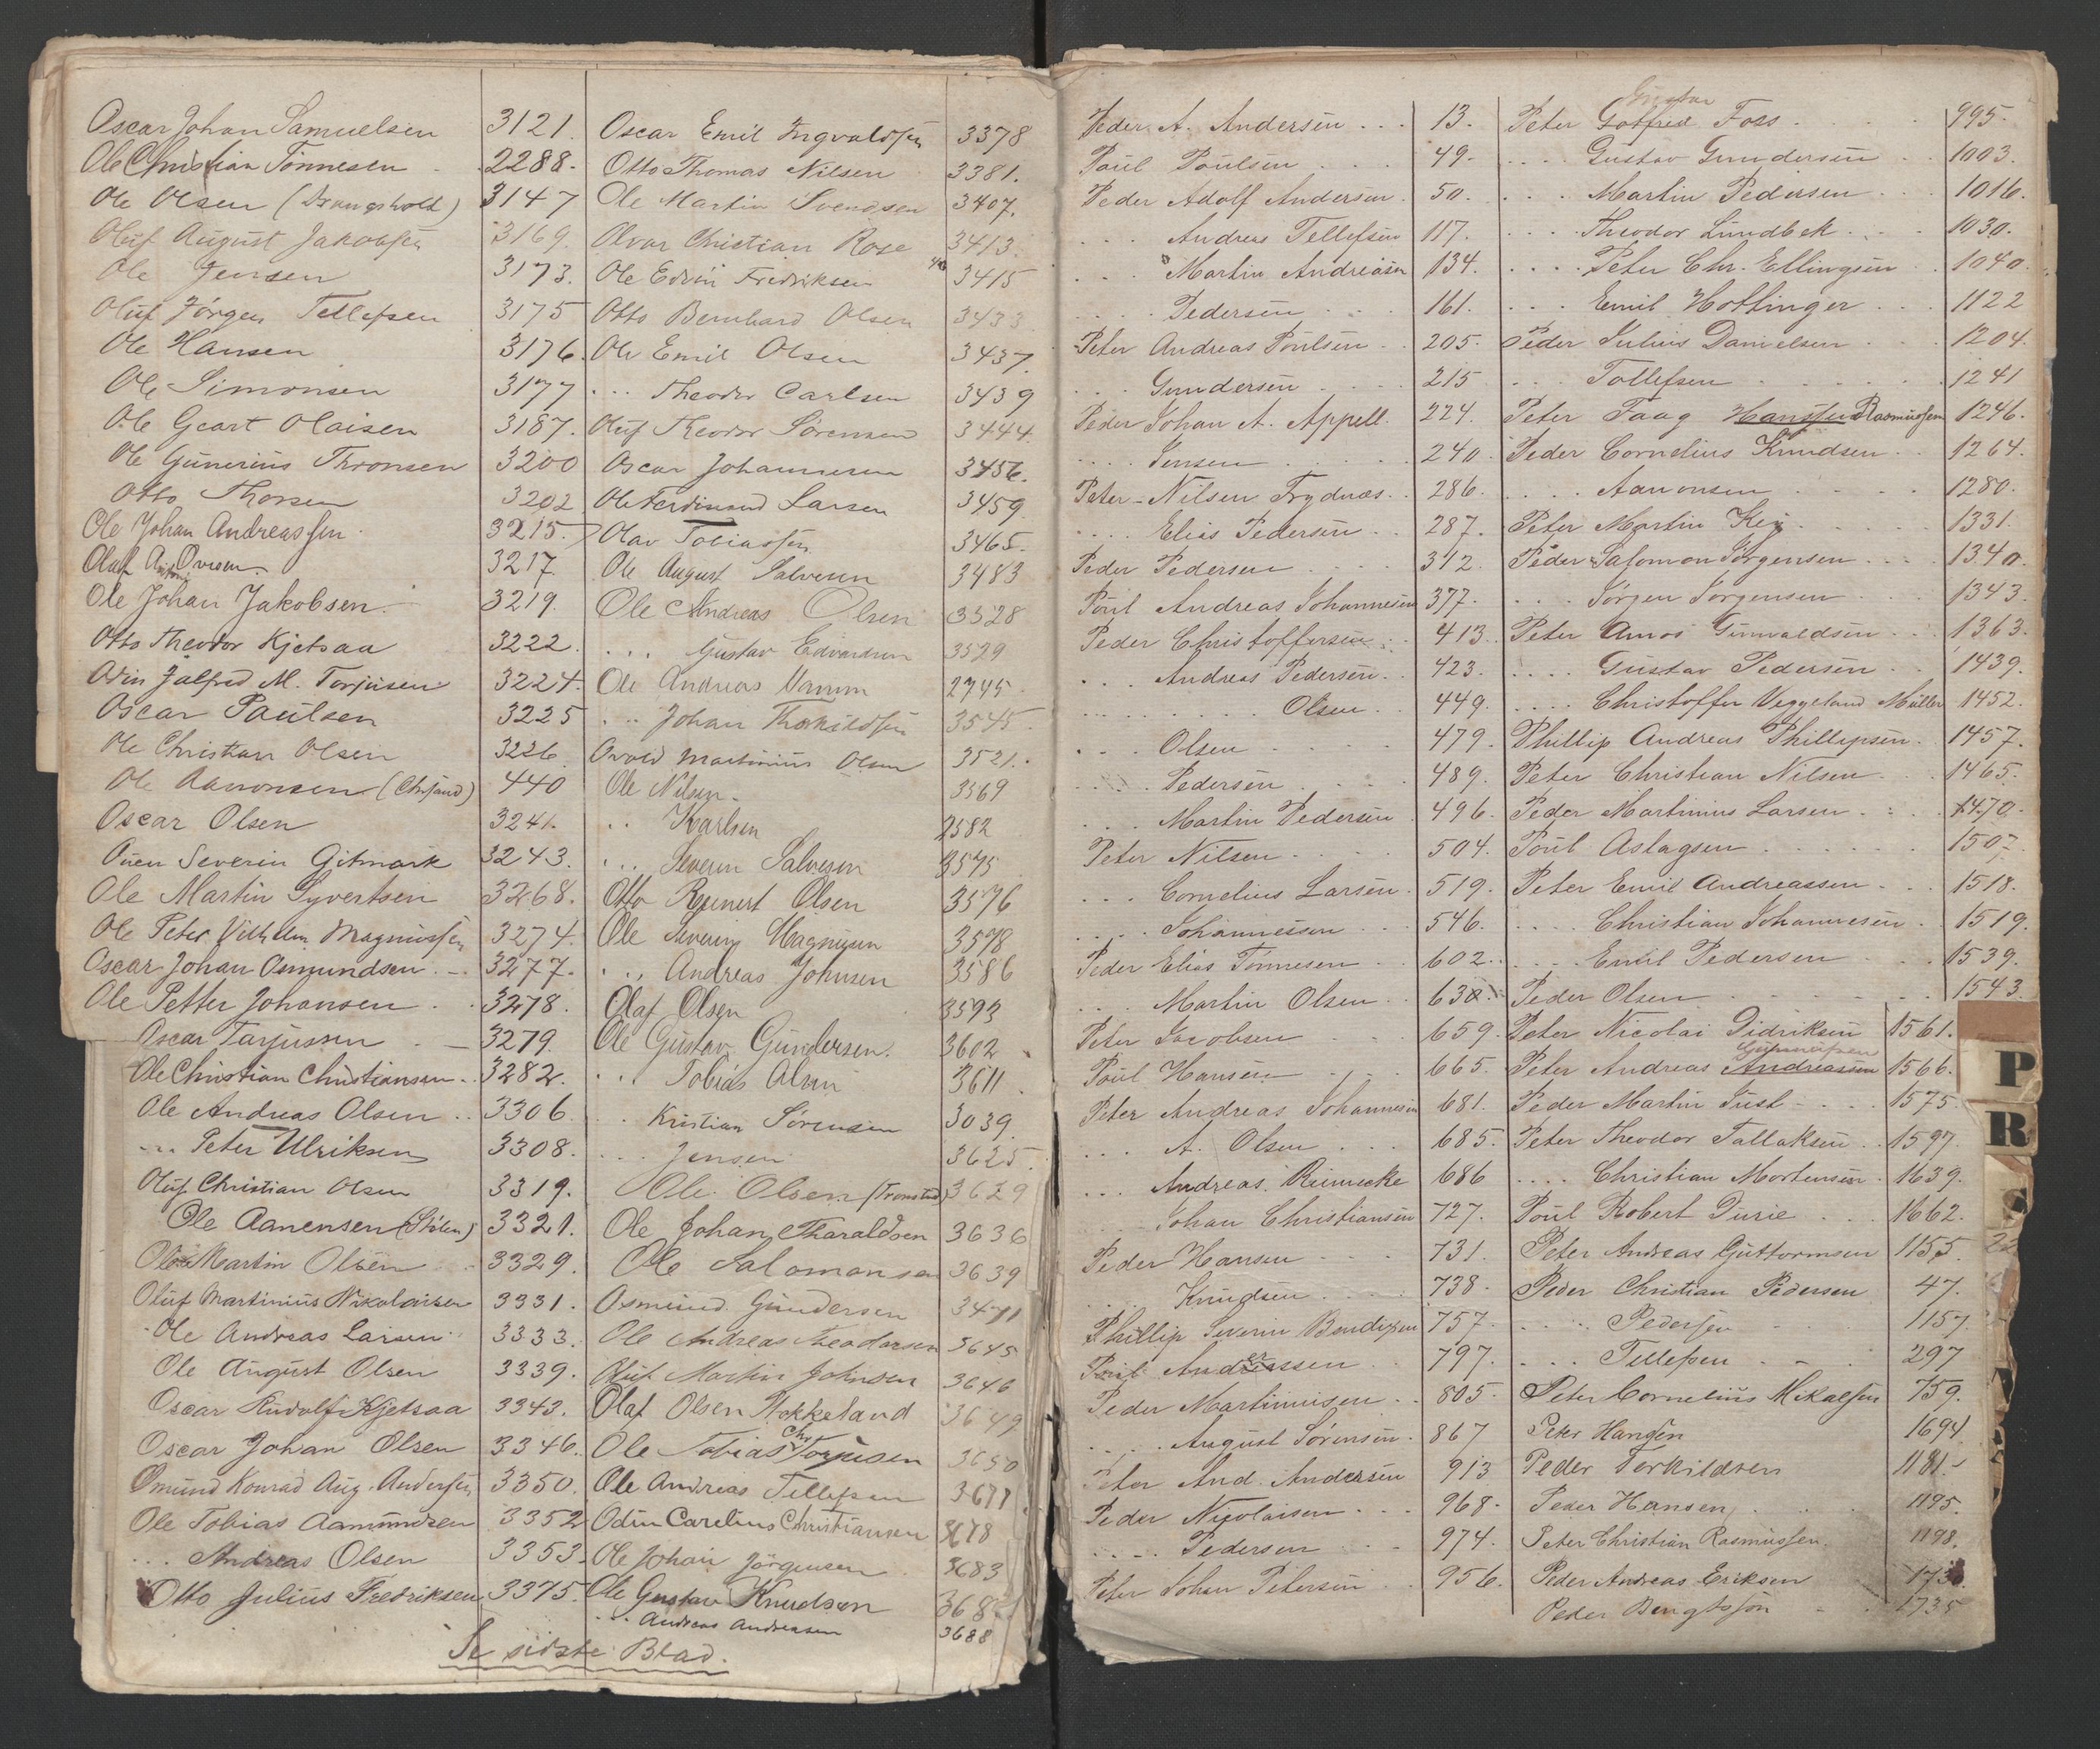 Oscar Johan Samuelsen 3121.
Ole Christian Tönnesen 2288.
Ole Olsen (Drangsholt) 3147
Oluf August Jakobsen 3169.
Ole Jensen 3173.
Oluf Jörgen Tellefsen 3175
Ole Hansen 3176.
Ole Simonsen 3177
Ole Geart Olaisen 3187.
Ole Gunerius Thronsen 3200
Otto Thorsen 3202
Ole Johan Andreassen 3215.
Oluf Anton Ovesen 3217.
Ole Johan Jakobsen. 3219.
Otto Theodor Kjetsaa 3222.
Odin Jalfred M. Torjusen 3224.
Oscar Paulsen 3225
Ole Christian Olsen 3226.
Ole Aanonsen (Chrsand) 440
Oscar Olsen 3241.
Ouen Severin Gitmark 3243.
Ole Martin Syvertsen 3268.
Ole Peter Vilhelm Magnussen 3274.
Oscar Johan Osmundsen 3277.
Ole Petter Johansen 3278.
Oscar Tarjussen 3279.
Ole Christian Christiansen 3282.
Ole Andreas Olsen 3306.
... Peter Ulriksen 3308.
Oluf Christian Olsen 3319.
Ole Aanensen (Stölen) 3321.
Ole Martin Olsen 3329.
Oluf Martinius Nikolaisen 3331.
Ole Andreas Larsen 3333.
Ole August Olsen 3339.
Oscar Rudolf Kjetsaa 3343.
Oscar Johan Olsen 3346.
Omund Konrad Aug. Andersen 3350.
Ole Tobias Aamundsen 3352
... Andreas Olsen 3353.
Otto Julius Fredriksen 3375.
Oscar Emil Ingvaldsen 3378
Otto Thomas Nilsen 3381.
Ole Martin Svendsen 3407.
Olvar Christian Rose 3413.
Ole Edvin Fredriksen 3415
Otto Bernhard Olsen 3433
Ole Emil Olsen 3437.
... Theodor Carlsen 3439
Oluf Theodor Sörensen 3444.
Oscar Johannesen 3456.
Ole Ferdinand Larsen 3459.
Olav Tobiassen 3465.
Ole August Salvesen 3483
Ole Andreas Olsen 3528
... Gustav Edvardsen 3529
Ole Andreas Hamm 2745
... Johan Thorkildsen 3545
Arvold Martinius Olsen 3521.
Ole Nilsen 3569
... Karlsen 3582
... Severin Salvesen 3575
Otto Reinert Olsen 3576
Ole Severin Magnusen 3578
... Andreas Johnsen 3586
Olaf Olsen 3593
Ole Gustav Gundersen. 3602
... Tobias Olsen 3611
... Kristian Sörensen 3039
... Jensen 3625.
Ole Olsen (Tromstad) 3629
Ole Johan Tharaldsen 3636
Ole Salomonsen 3639
Osmund Gundersen 3471
Ole Andreas Theodorsen 3645
Oluf Martin Johnsen 3646
Olaf Olsen Stokkeland 3649
Ole Tobias Chr. Torjusen 3650
Ole Andreas Tellefsen 3677
Odin Carelius Christiansen 3678
Ole Johan Jörgensen 3683
Ole Gustav Knudsen
... Andreas Andreasen 3688
Se sidste Blad.
Peder A. Andersen 13.
Poul Poulsen 49.
Peder Adolf Andersen 50.
... Andreas Tellefsen 117.
... Martin Andreasen 134.
... Pedersen 161.
Peter Andreas Poulsen 205.
... Gundersen 215
Peder Johan A. Appell. 224.
... Jensen 240.
Peter Nilsen Trydnæs 286.
... Elias Pedersen 287.
Peder Pedersen 312.
Poul Andreas Johannesen 377.
Peder Christoffersen 413.
... Andreas Pedersen 423.
... Olsen 449.
... Olsen 479.
... Pedersen 489.
... Martin Pedersen 496.
Peter Nilsen 504.
... Cornelius Larsen 519.
... Johannessen 546.
Peder Elias Tönnesen 602.
... Martin Olsen 638.
Peter Jacobsen 659.
Poul Hansen 665.
Peter Andreas Johannesen 681.
... A. Olsen 685.
... Andreas Reinecke 686
... Johan Christiansen 727.
Peder Hansen 731.
... Knudsen 738.
Phillip Severin Bendixen 757.
Poul Andreassen 797.
Peder Martiniusen 805.
... August Sörensen 867
Peter And. Andersen 913
Peder Nicolaisen 968.
... Pedersen 974.
Peter Johan Petersen 956.
Gustav
Peter Gotfred Foss 995.
... Gustav Gundersen 1003.
... Martin Pedersen 1016.
... Theodor Lundbek 1030.
... Peter Chr. Ellingsen 1040.
... Emil Hottinger 1122
Peder Julius Danielsen 1204.
... Tollefsen 1241
Peter Taag Hansen Rasmussen 1246.
Peder Cornelius Knudsen 1264.
... Aanonsen 1280.
Peter Martin Kej 1331.
Peder Salomon Jörgensen 1340.
... Jörgen Jörgensen 1343.
Peter Amos Gunvaldsen 1363.
... Gustav Pedersen 1439.
... Christoffer Veggeland Müller 1452.
Phillip Andreas Phillipsen 1457.
Peter Christian Nilsen 1465.
Peder Martinius Larsen 1470.
Poul Aslagsen 1507.
Peter Emil Andreassen 1518.
... Christian Johannesen 1519.
... Emil Pedersen 1539.
Peder Olsen 1543.
Peter Nicolai Didriksen 1561.
Peter Andreas Andreasen 1566.
Peder Martin Just 1575.
Peter Theodor Tallaksen 1597.
... Christian Mortensen 1639.
Poul Robert Durie 1662.
Peter Andreas Guttormsen 1155.
Peder Christian Pedersen 47.
... Pedersen 1157
... Tellefsen 297
Peter Cornelius Mikalsen 759.
Peter Hansen 1694
Peder Terkildsen 1181.
Peder Hansen 1195.
Peter Christian Rasmussen. 1198.
Peder Andreas Eriksen
Peder Bengtsson 1735
P
R